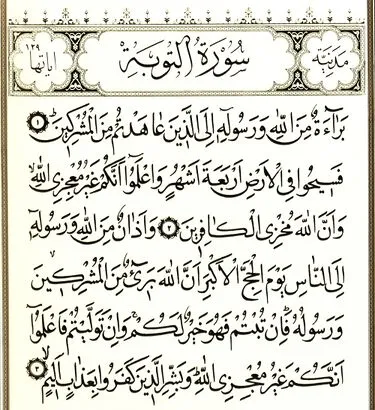 مدنية سورة التوبة اياتها ١٢٩
بَرَاءَةٌ مِنَ اللّٰهِ وَرَسُولِهٖ اِلَى الَّذِينَ عَاهَدْتُمْ مِنَ الْمُشْرِكِينَ ١
فَسِيحُوا فِي الْاَرْضِ اَرْبَعَةَ اَشْهُرٍ وَاعْلَمُوا اَنَّكُمْ غَيْرُ مُعْجِزِي اللّٰهِ
وَاَنَّ اللّٰهَ مُخْزِي الْكَافِرِينَ ٢ وَاَذَانٌ مِنَ اللّٰهِ وَرَسُولِهٖ
اِلَى النَّاسِ يَوْمَ الْحَجِّ الْاَكْبَرِ اَنَّ اللّٰهَ بَرِيءٌ مِنَ الْمُشْرِكِينَ
وَرَسُولُهُ فَاِنْ تُبْتُمْ فَهُوَ خَيْرٌ لَكُمْ وَاِنْ تَوَلَّيْتُمْ فَاعْلَمُوا
اَنَّكُمْ غَيْرُ مُعْجِزِي اللّٰهِ وَبَشِّرِ الَّذِينَ كَفَرُوا بِعَذَابٍ اَلِيمٍ ٣